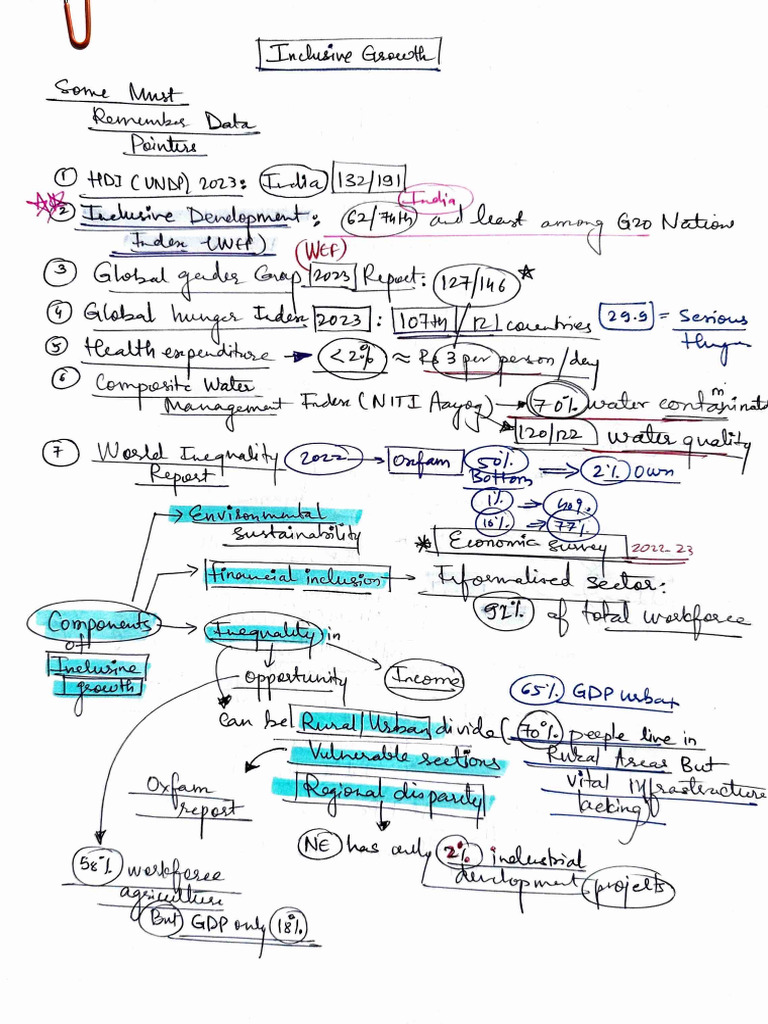 Inclusive Growth
Some Must
Remember Data
Pointers
① HDI (UNDP) 2023: India 132/191
India
② Inclusive Development: 62/74th and least among G20 Nation
Index (WEF)
(WEF)
③ Global gender Gap 2023 Report: 127/146
④ Global hunger Index 2023: 107th/121 countries 29.9 = Serious
Hunger
⑤ Health expenditure → <2% ≈ Rs 3 per person/day
⑥ Composite Water
Management Index (NITI Aayog) → 70% water contaminat
→ 120/122 water quality
⑦ World Inequality 2022 → Oxfam 50% ⇒ 2% Own
Report Bottom
1% → 40%
10% → 77%
→ Environmental
sustainability
Economic Survey 2022-23
→ Financial inclusion → Informalised sector:
92% of total workforce
Components → Inequality in
of
Inclusive
growth
opportunity Income
65% GDP urban
can be Rural/Urban divide (70% people live in
Rural Areas But
vital infrastructure
lacking)
Vulnerable sections
Regional disparity
Oxfam
report
NE has only 2% industrial
development projects
58% workforce
agriculture
But GDP only 18%